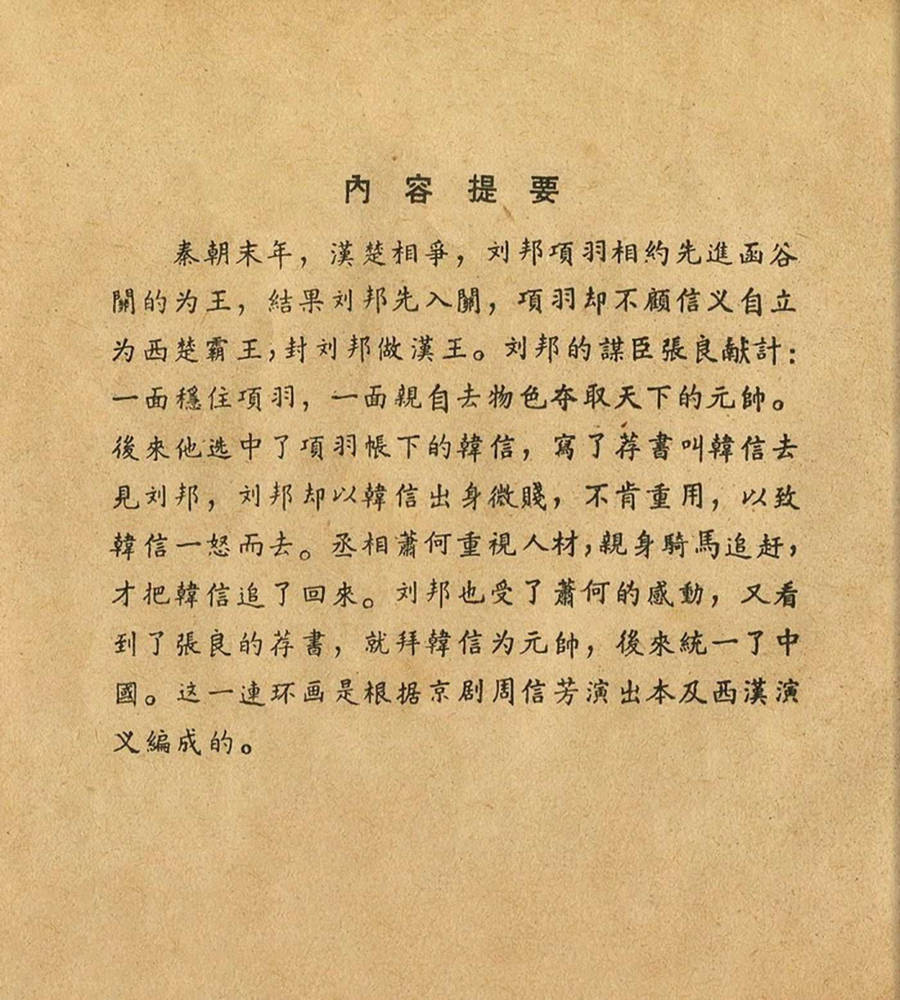 內容提要
秦朝末年，漢楚相爭，刘邦項羽相約先進函谷
關的为王，結果刘邦先入關，項羽却不顧信义自立
为西楚霸王，封刘邦做漢王。刘邦的謀臣張良献計：
一面穩住項羽，一面親自去物色夺取天下的元帥。
後來他选中了項羽帳下的韓信，寫了荐書叫韓信去
見刘邦，刘邦却以韓信出身微賤，不肯重用，以致
韓信一怒而去。丞相蕭何重視人材，親身騎馬追赶，
才把韓信追了回來。刘邦也受了蕭何的感動，又看
到了張良的荐書，就拜韓信为元帥，後來統一了中
國。这一連环画是根据京剧周信芳演出本及西漢演
义編成的。